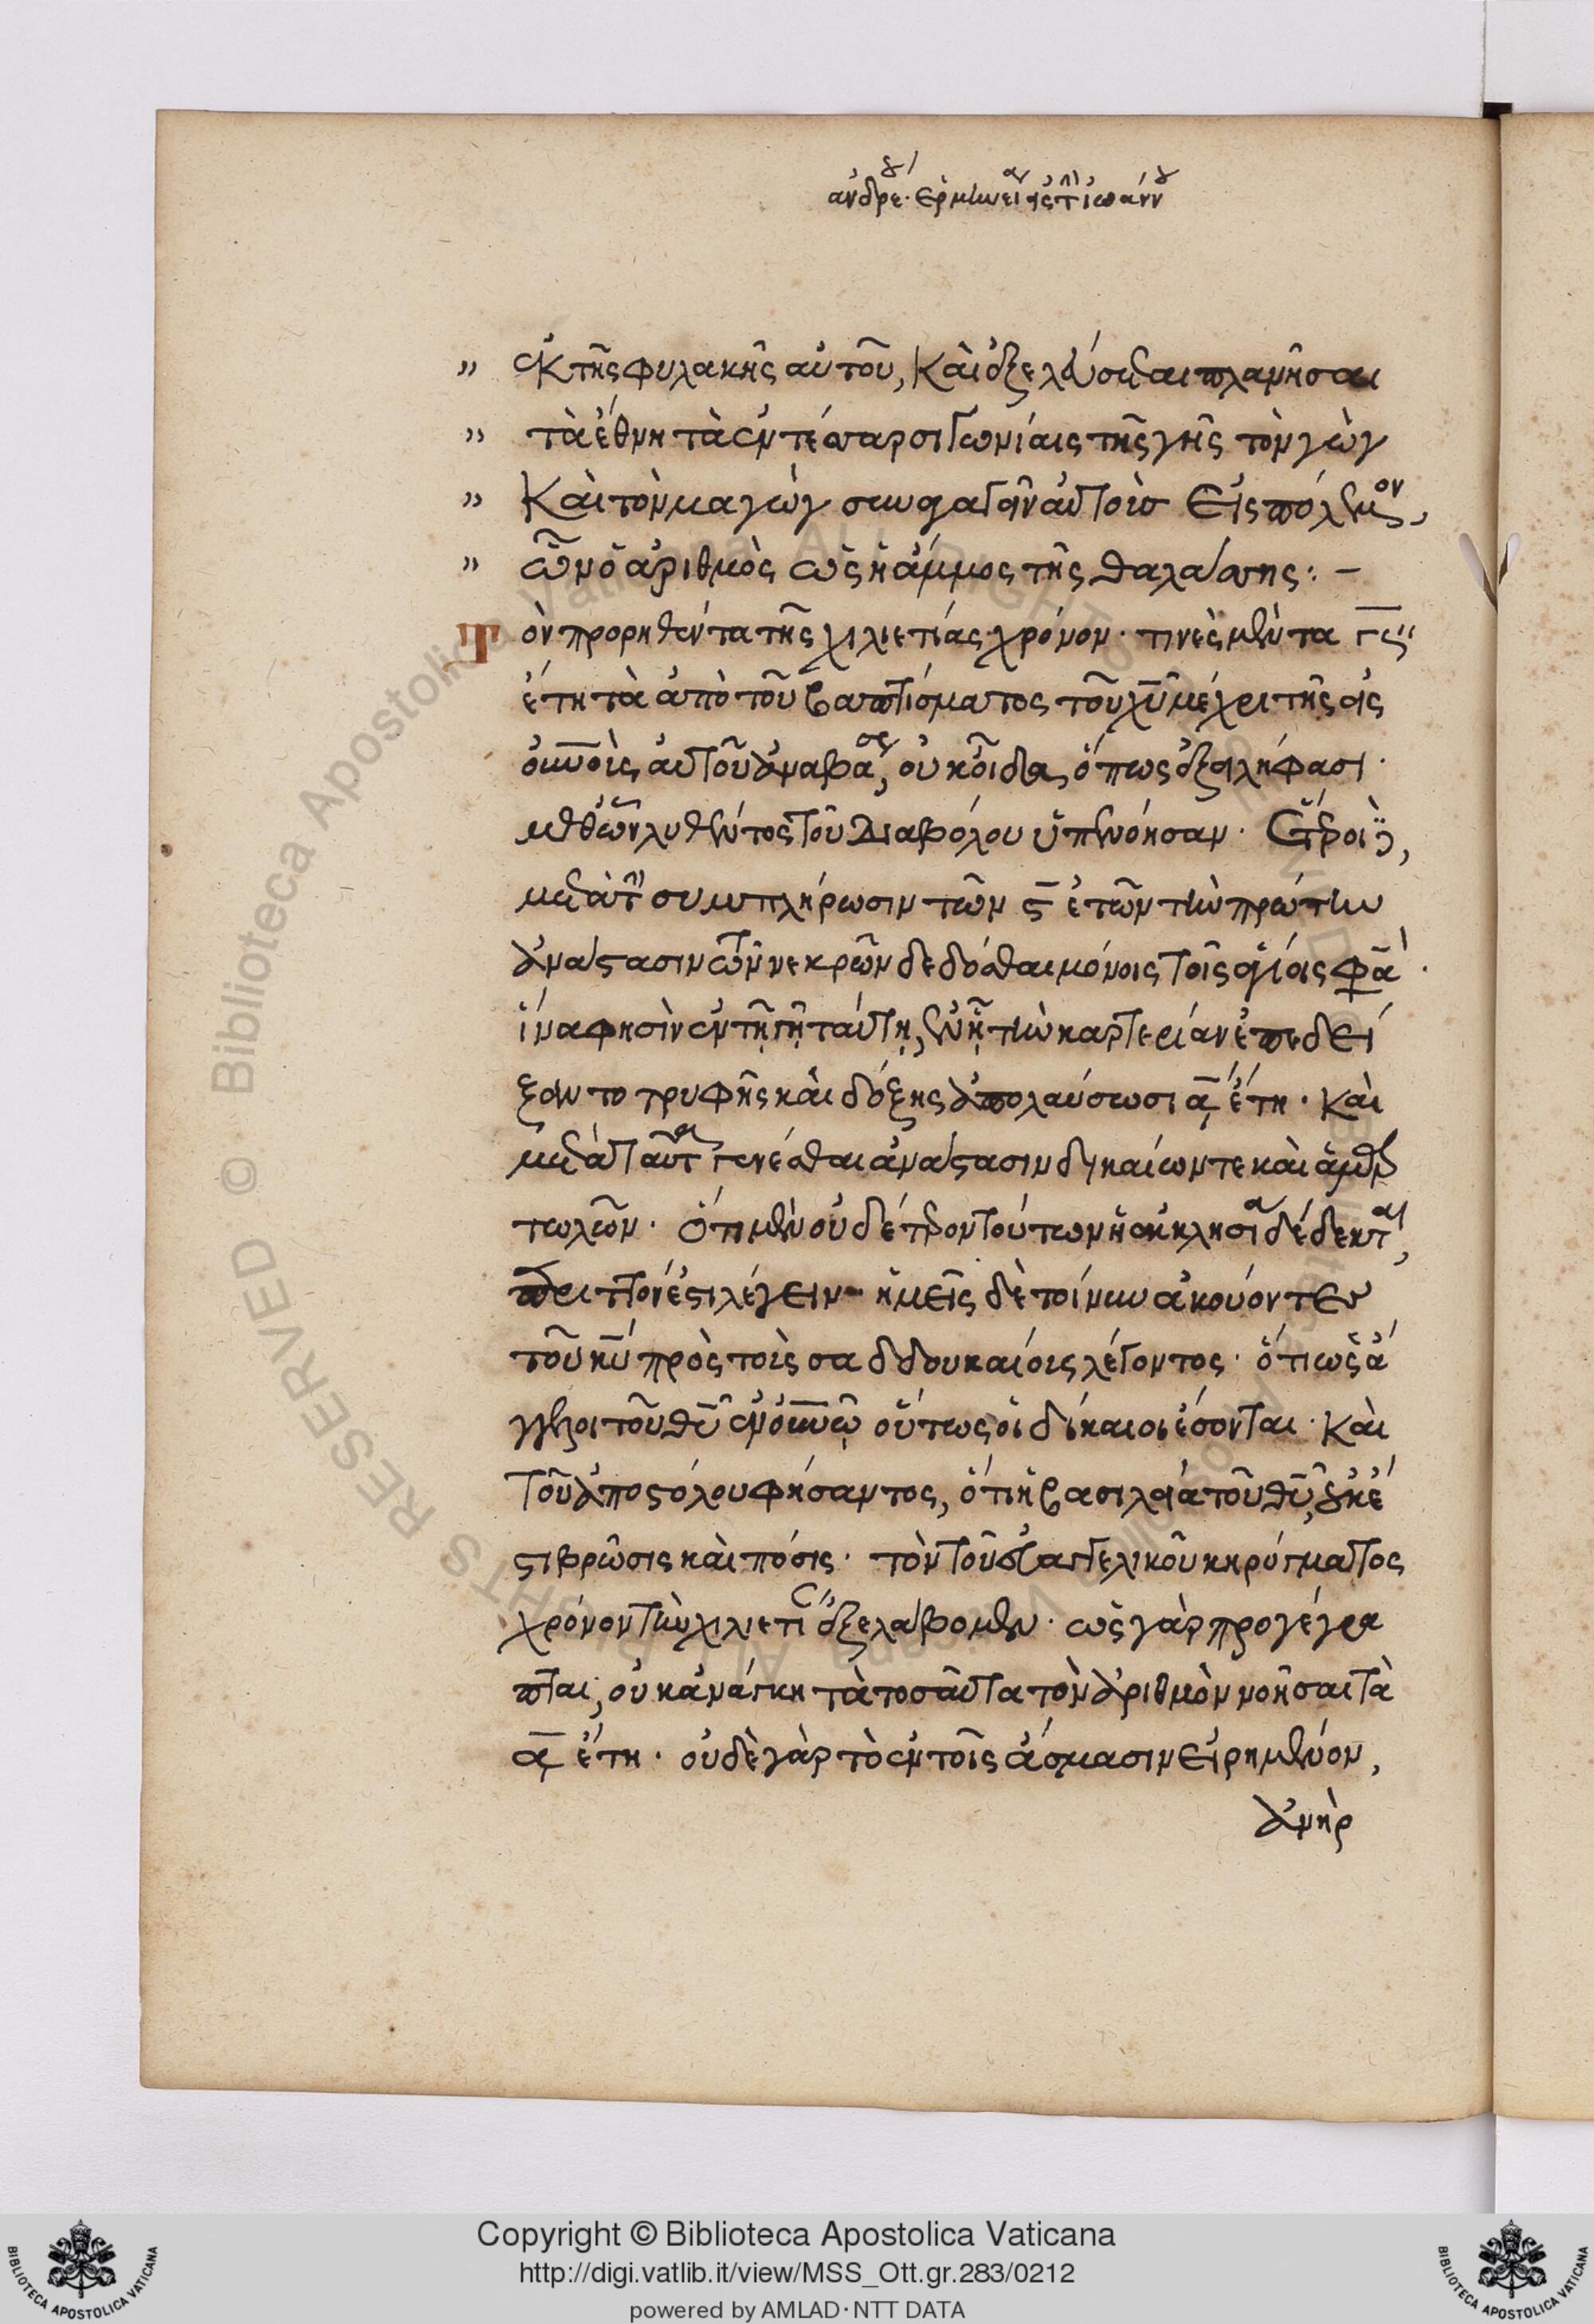 ἀνδρέου ἑρμηνεία εἰς τὴν ἰωάννου
" ἐκ τῆς φυλακῆς αὐτοῦ, καὶ ἐξελεύσεται πλανῆσαι
" τὰ ἔθνη τὰ ἐν τέσσαρσι γωνίαις τῆς γῆς τὸν γὼγ
" καὶ τὸν μαγὼγ συναγαγεῖν αὐτοὺς εἰς πόλεμον,
" ὧν ὁ ἀριθμὸς ὡς ἡ ἄμμος τῆς θαλάσσης: –
Τὸν προρηθέντα τῆς χιλιετίας χρόνον· τινὲς μὲν τὰ γς"
ἔτη τὰ ἀπὸ τοῦ βαπτίσματος τοῦ χῦ μέχρι τῆς εἰς
οὐνοὺς αὐτοῦ ἀναβάσεως, οὐκ οἶδα, ὅπως ἐξειλήφασι·
μεθ' ὧν λυθέντος τοῦ διαβόλου ὑπενόησαν· ἕτεροι δὲ,
μετὰ τὴν συμπλήρωσιν τῶν ς ἐτῶν τὴν πρώτην
ἀνάστασιν ἐκ τῶν νεκρῶν δεδόσθαι μόνοις τοῖς ἁγίοις φασὶ·
ἵνα φησὶν ἐν τῇ γῇ ταύτῃ, ἐν ᾗ τὴν καρτερίαν ἐπεδεί
ξαντο τρυφῆς καὶ δόξης ἀπολαύσωσι ͵α ἔτη· καὶ
μετὰ ταῦτα γενέσθαι ἀνάστασιν δικαίων τε καὶ ἁμαρ
τωλῶν· ὅτι μὲν οὐδέτερον τούτων ἡ ἐκκλησία δέδεκται,
περιττόν ἐστι λέγειν· ἡμεῖς δὲ τοίνυν ἀκούοντες
τοῦ κῦ πρὸς τοὺς σαδδουκαίοις λέγοντος· ὅτι ὡς ἄ
γγελοι τοῦ θῦ ἐν οὐνῷ οὕτως οἱ δίκαιοι ἔσονται· καὶ
τοῦ ἀποστόλου φήσαντος, ὅτι ἡ βασιλεία τοῦ θῦ, οὐκ ἔ
στι βρῶσις καὶ πόσις· τὸν τοῦ εὐαγγελικοῦ κηρύγματος
χρόνον τὴν χιλιετίαν ἐξελάβομεν· ὡς γὰρ προγέγρα
πται, οὐκ ἀνάγκη τὰ τοσαῦτα τὸν ἀριθμὸν νοῆσαι τὰ
͵α ἔτη· οὐδὲ γὰρ τὸ ἐν τοῖς ἄσμασιν εἰρημένον,
ἀνὴρ
Copyright © Biblioteca Apostolica Vaticana
http://digi.vatlib.it/view/MSS_Ott.gr.283/0212
powered by AMLAD·NTT DATA